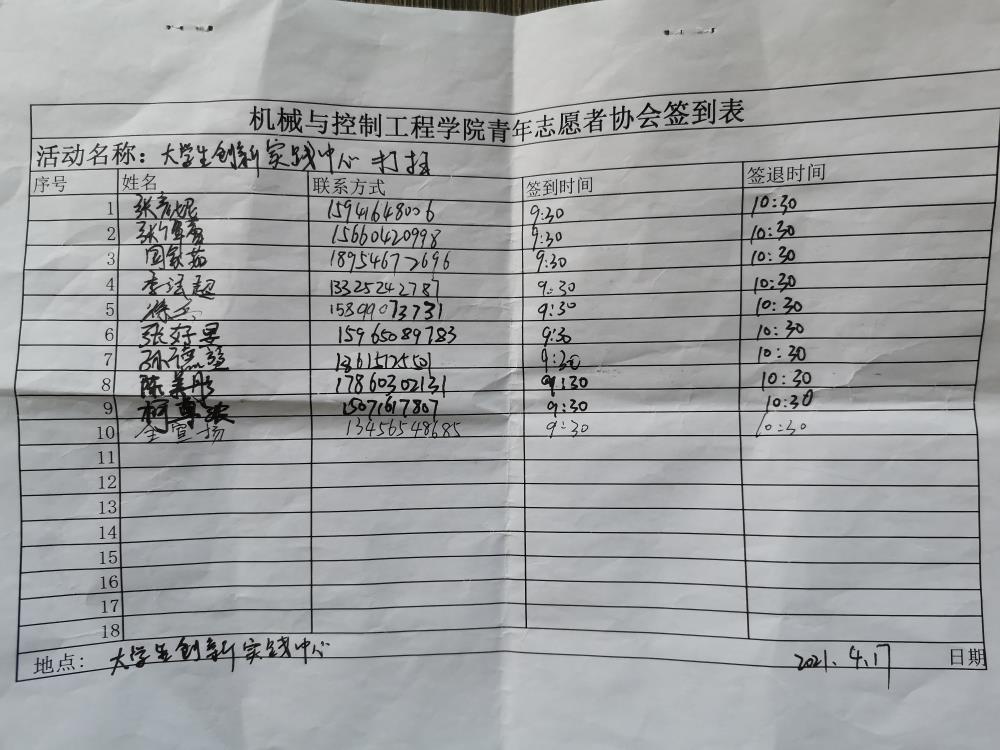 机械与控制工程学院青年志愿者协会签到表
活动名称：大学生创新实践中心 打扫
序号 姓名 联系方式 签到时间 签退时间
1 张 妮 15941648006 9:30 10:30
2 张 15660420998 9:30 10:30
3 18954672696 9:30 10:30
4 李 超 13325242787 9:30 10:30
5 徐 15899073731 9:30 10:30
6 张好旻 15965089783 9:30 10:30
7 孙德 9:30 10:30
8 陈美彤 17860302131 9:30 10:30
9 柯尊 15071617807 9:30 10:30
10 金宣扬 13456548685 9:30 10:30
11
12
13
14
15
16
17
18
地点：大学生创新实践中心 2021.4.17 日期